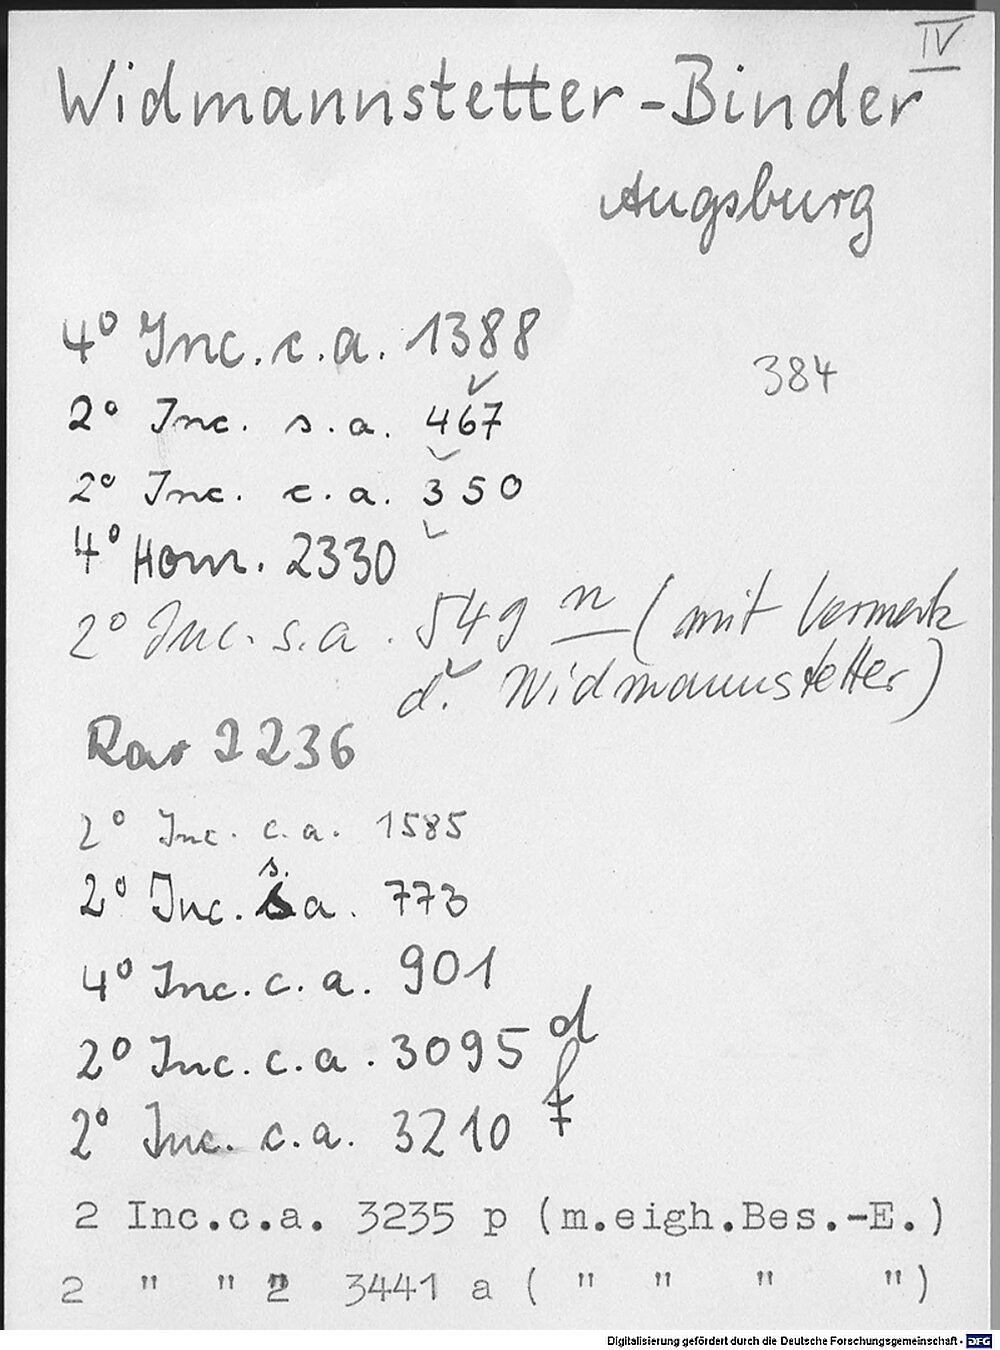 IV
Widmannstetter-Binder
Augsburg
4° Inc. c. a. 1388
384
2° Inc. s. a. 467
2° Inc. c. a. 350
4° Hom. 2330
2° Inc. s. a. 549 n (mit Vermerk
d. Widmannstetter)
Rar 2236
2° Inc. c. a. 1585
2° Inc. s. a. 773
4° Inc. c. a. 901
2° Inc. c. a. 3095 d
2° Inc. c. a. 3210 f
2 Inc.c.a. 3235 p (m.eigh.Bes.-E.)
2 " " " 3441 a ( " " " ")
Digitalisierung gefördert durch die Deutsche Forschungsgemeinschaft - DFG